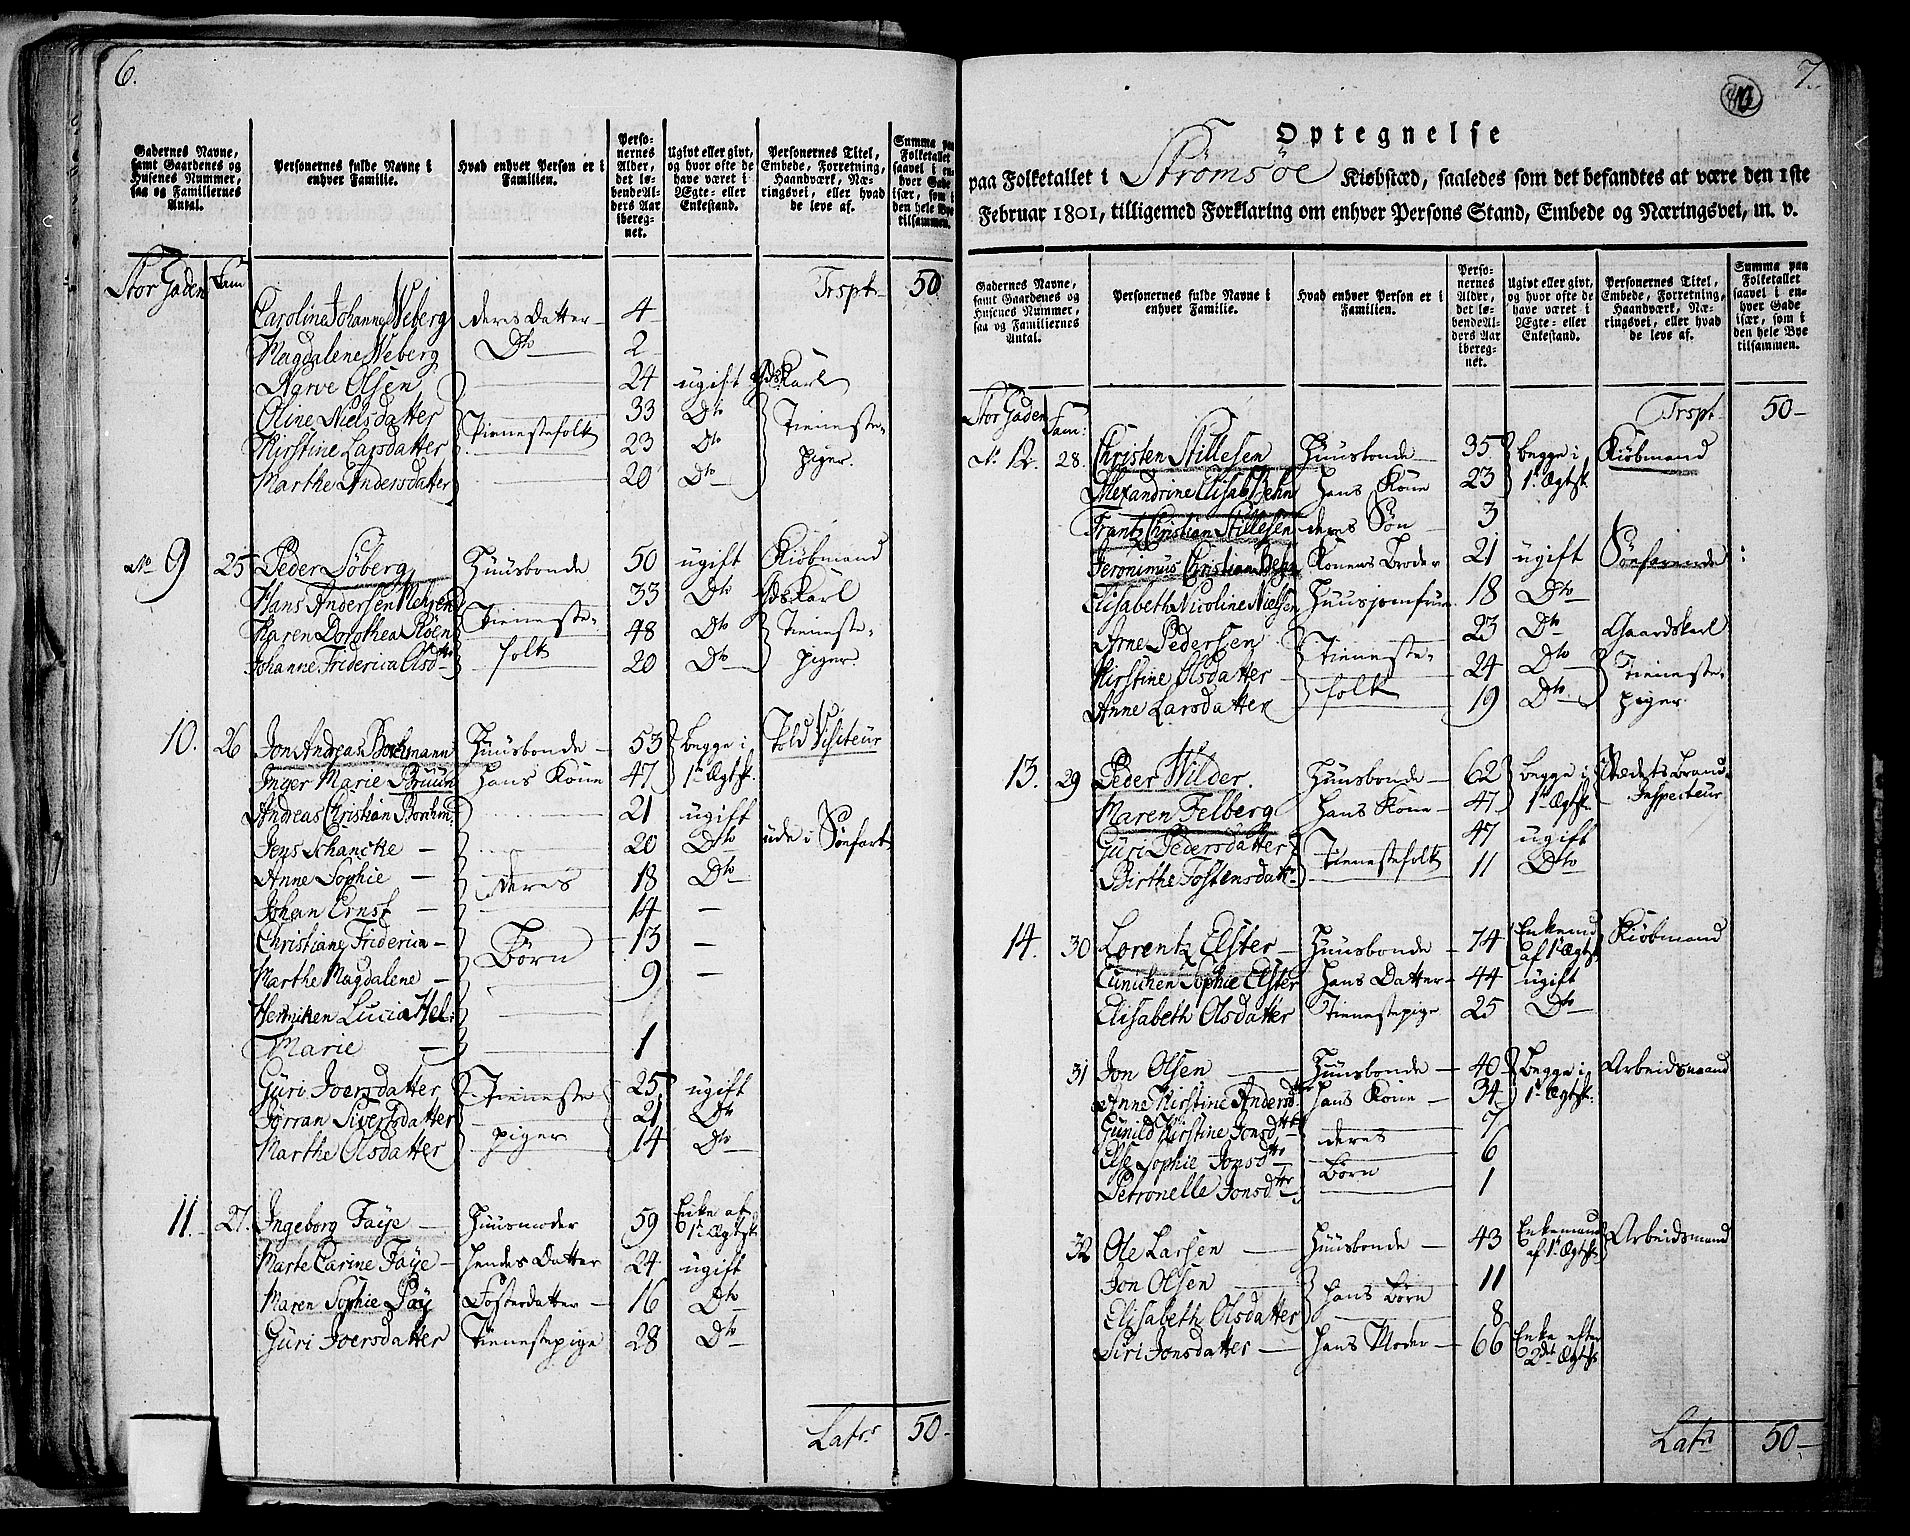 6.
Gadernes Navne, samt Gaardenes og Husenes Nummer, saa og Familiernes Antal.
Personernes fulde Navne i enhver Familie.
Hvad enhver Person er i Familien.
Personernes Alder, det løbende Alders Aar iberegnet.
Ugivt eller givt, og hvor ofte de have været i Ægte- eller Enkestand.
Personernes Titel, Embede, Forretning, Haandværk, Næringsvei, eller hvad de leve af.
Summa paa Folketallet saavel i enhver Gade især, som i den hele Bye tilsammen.
Stor Gaden Fam Trspt 50
Caroline Johanne Neberg deres Datter 4
Magdalene Neberg Dto 2
Olsen 24 ugift Gdskarl
Oline Nielsdatter Tienestefolk 33 Dto Tieneste-
Kirstine Larsdatter 23 Dto piger.
Marthe Andersdatter 20 Dto
No 9 25 Peder Søberg Huusbonde 50 ugift Kiøbmand
Hans Andersen Tieneste- 33 Dto Gdskarl
Karen Dorothea folk 48 Dto Tieneste-
Johanne Friderica Olsdtr 20 Dto piger.
10. 26 Jon Andreas Borchmann Huusbonde 53 begge i Told Visiteur
Inger Marie Bruun hans Kone 47 1t Ægtsk.
Andreas Christian Borchm. 21 ugift
Jens Schancke 20 Dto ude i Søefart
Anne Sophie deres 18 Dto
Johan Ernst 14 —
Christiane Friderica Børn 13 —
Marthe Magdalene 9 —
Henniken Lucia Hel:
Marie 1
Güri Joersdatter Tieneste 25 ugift
Jørran Sivertsdatter piger 21 Dto
Marthe Olsdatter 14 Dto
11. 27. Ingeborg Faÿe Huusmoder 59 Enke af 1t Ægtsk.
Marte Carine Faÿe hendes Datter 24 ugift
Maren Sophie Faÿ Fosterdatter 16 Dto
Güri Joersdatter Tienestepige 28 Dto
Latr 50
7.
Optegnelse
paa Folketallet i Strømsøe Kiøbstæd, saaledes som det befandtes at være den 1ste
Februar 1801, tilligemed Forklaring om enhver Persons Stand, Embede og Næringsvei, m. v.
Gadernes Navne, samt Gaardenes og Husenes Nummer, saa og Familiernes Antal.
Personernes fulde Navne i enhver Familie.
Hvad enhver Person er i Familien.
Personernes Alder, det løbende Alders Aar iberegnet.
Ugivt eller givt, og hvor ofte de have været i Ægte- eller Enkestand.
Personernes Titel, Embede, Forretning, Haandværk, Næringsvei, eller hvad de leve af.
Summa paa Folketallet saavel i enhver Gade især, som i den hele Bye tilsammen.
Stor Gaden Fam: Trspt 50
No 12. 28. Christen Stillesen Huusbonde 35 begge i Kiøbmand
Alexandrine Elisab Behn hans Kone 23 1t Ægtsk
Frantz Christian Stillesen deres Søn 3
Jeronimus Christian Behn Konens Broder 21 ugift Søefarende
Elisabeth Nicoline Nielsen Huusjomfrue 18 Dto
Arne Pedersen Tieneste- 23 Dto Gaardskarl
Kirstine Olsdatter folk 24 Dto Tieneste-
Anne Larsdatter 19 Dto piger.
13. 29 Peder Wilder. Huusbonde 62 begge i Stædets Brand
Maren Felberg hans Kone 47 1t Ægtsk. Inspecteur
Güri Pedersdatter Tienestefolk 47 ugift
Birthe Tostensdatr 11 Dto
14. 30 Lorentz Elster Huusbonde 74 Enkemd af 1t Ægtsk Kiøbmand
Cunichen Sophie Elster hans Datter 44 ugift
Elisabeth Olsdatter Tienestepige 25 Dto
31 Jon Olsen Huusbonde 40 begge i Arbeidsmand
Anne Kirstine Andersdtr hans Kone 34 1t Ægtsk:
Gunild Kirstine Jonsdtr deres 7
Else Sophie Jonsdtr Børn 6
Petronelle Jonsdtr 1
32 Ole Larsen Huusbonde 43 Enkemand af 1t Ægtsk Arbeidsmand
Jon Olsen hans Børn 11
Elisabeth Olsdatter 8
Siri Jonsdatter hans Moder 66 Enke efter 2det Ægtsk
Latr 50